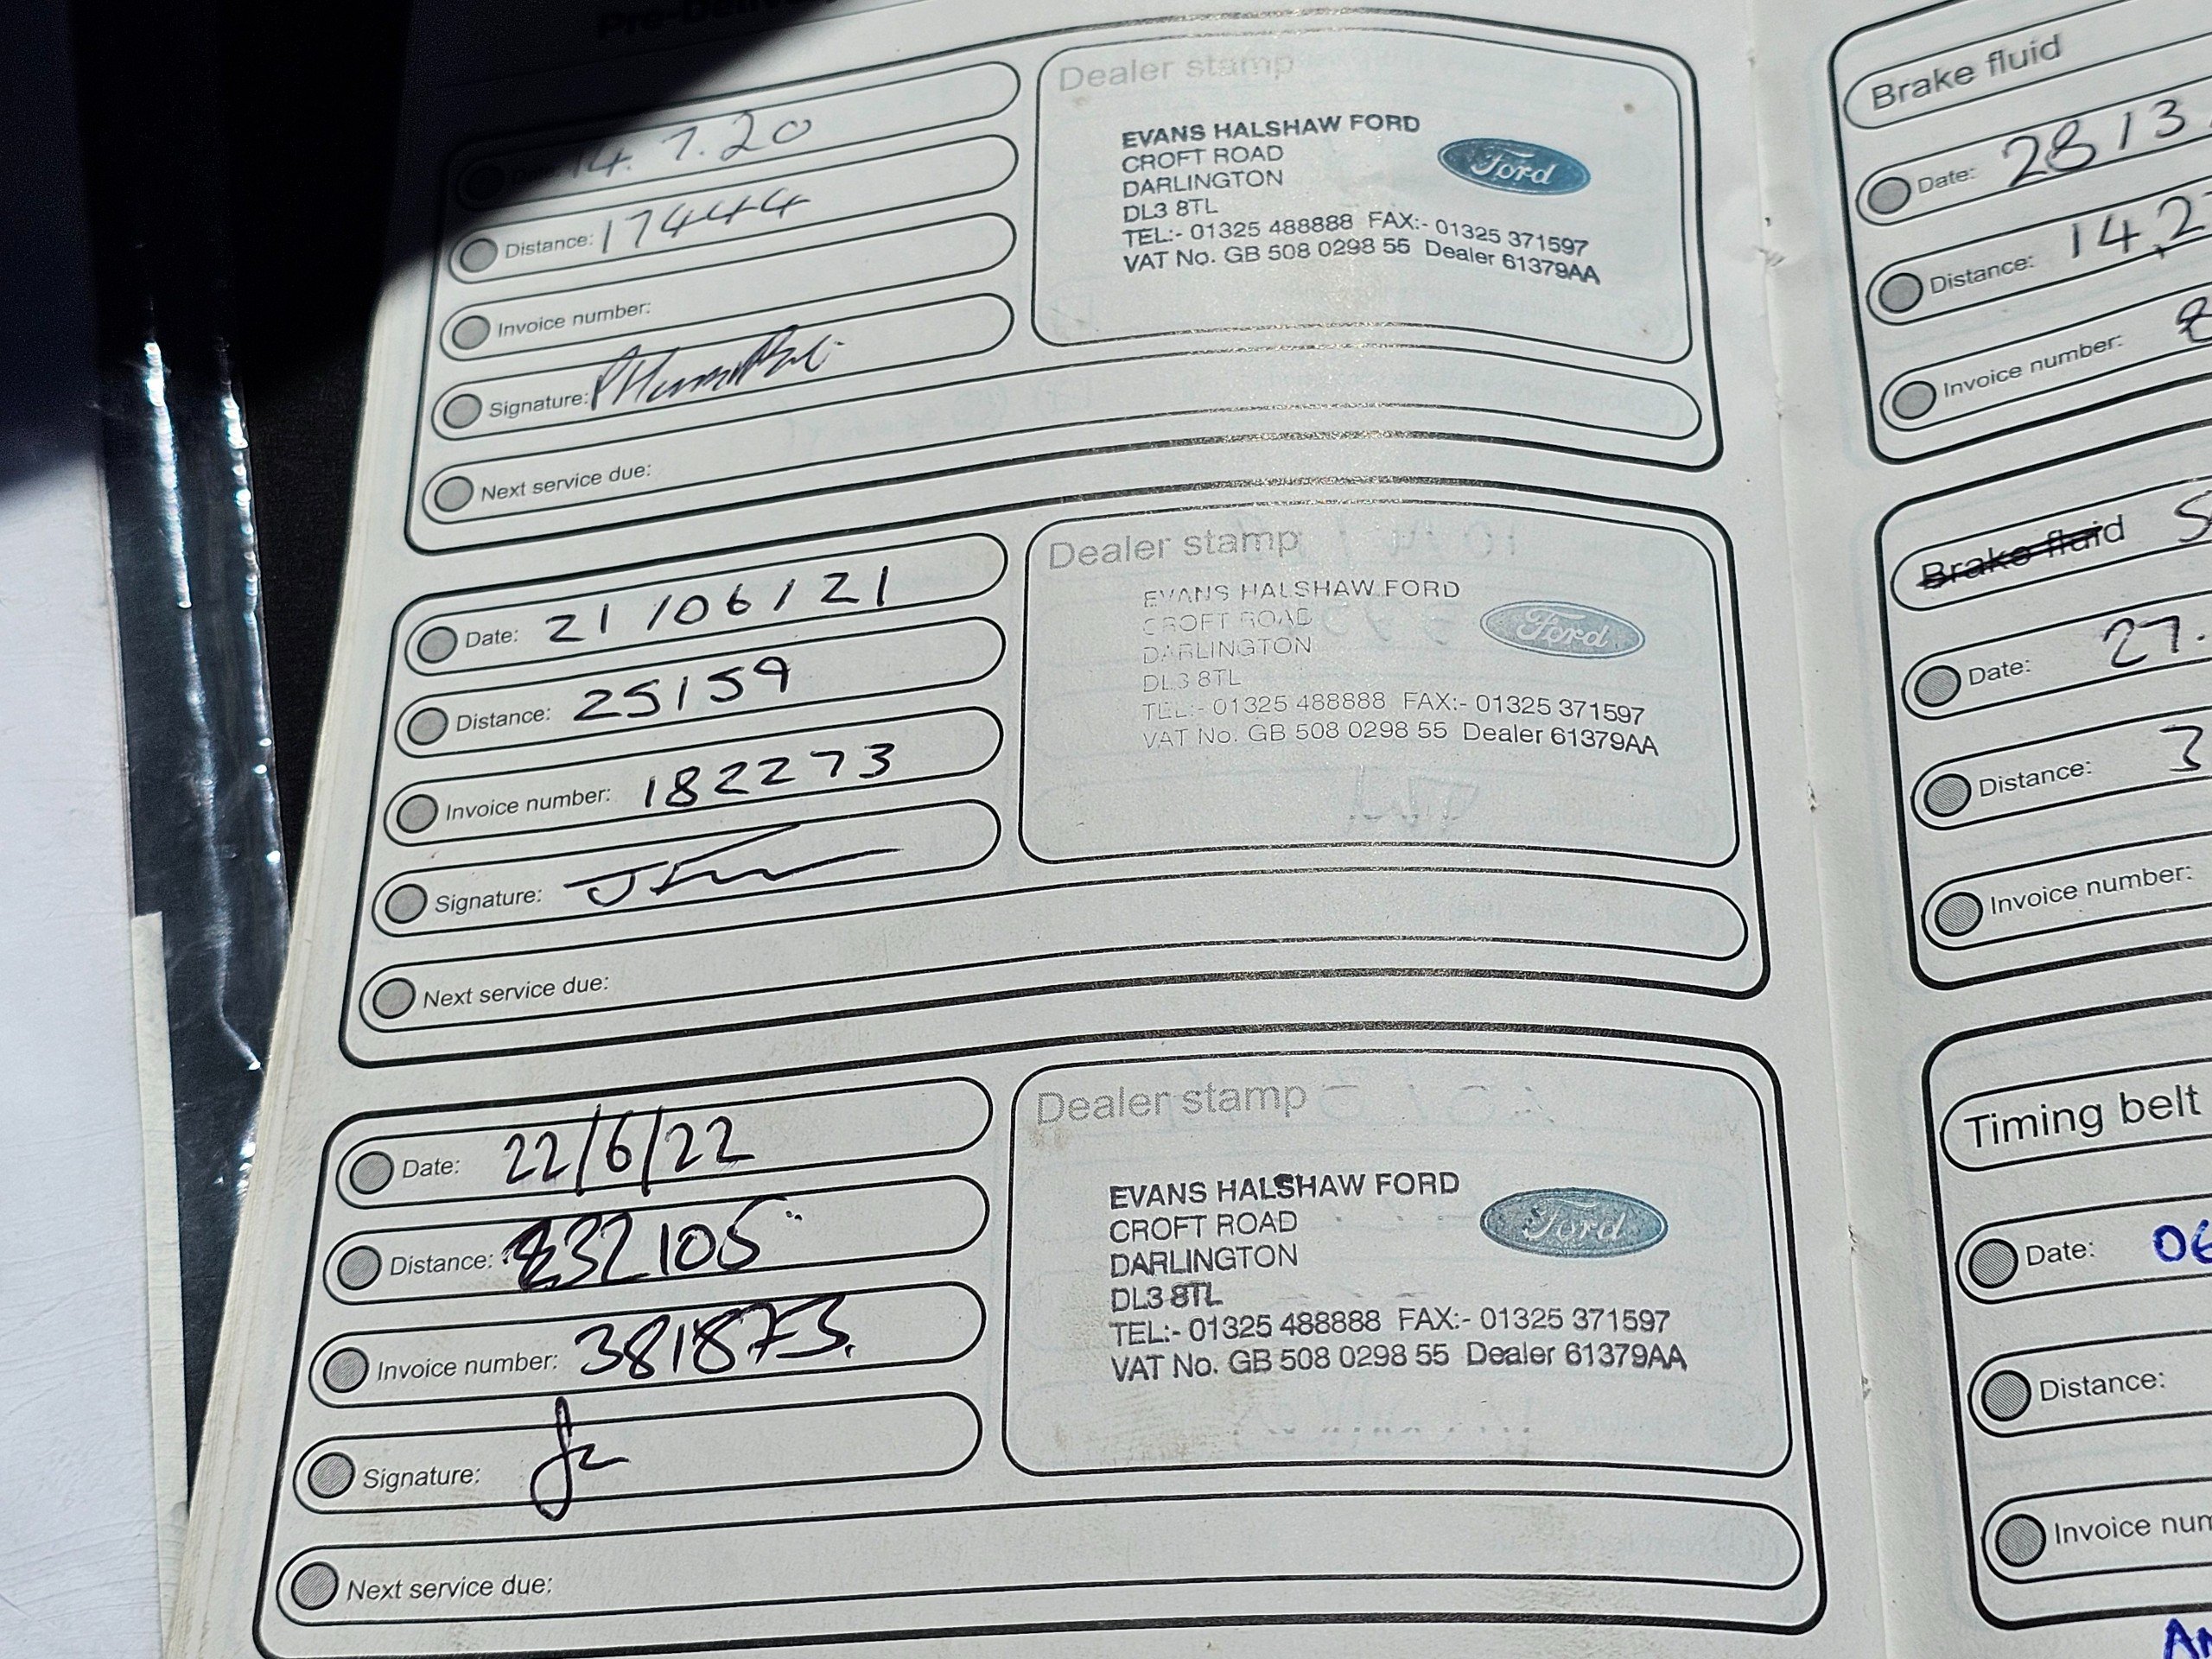 Date: 14.7.20
Distance: 17444
Invoice number:
Signature:
Next service due:
Dealer stamp
EVANS HALSHAW FORD
CROFT ROAD
DARLINGTON
DL3 8TL
TEL:- 01325 488888 FAX:- 01325 371597
VAT No. GB 508 0298 55 Dealer 61379AA
Ford
Date: 21/06/21
Distance: 25159
Invoice number: 182273
Signature:
Next service due:
Dealer stamp
EVANS HALSHAW FORD
CROFT ROAD
DARLINGTON
DL3 8TL
TEL:- 01325 488888 FAX:- 01325 371597
VAT No. GB 508 0298 55 Dealer 61379AA
Ford
Date: 22/6/22
Distance: 32105
Invoice number: 381873.
Signature:
Next service due:
Dealer stamp
EVANS HALSHAW FORD
CROFT ROAD
DARLINGTON
DL3 8TL
TEL:- 01325 488888 FAX:- 01325 371597
VAT No. GB 508 0298 55 Dealer 61379AA
Ford
Brake fluid
Date: 28 13
Distance: 14,2
Invoice number:
Brake fluid
Date: 27.
Distance: 3
Invoice number:
Timing belt
Date: 06
Distance:
Invoice num